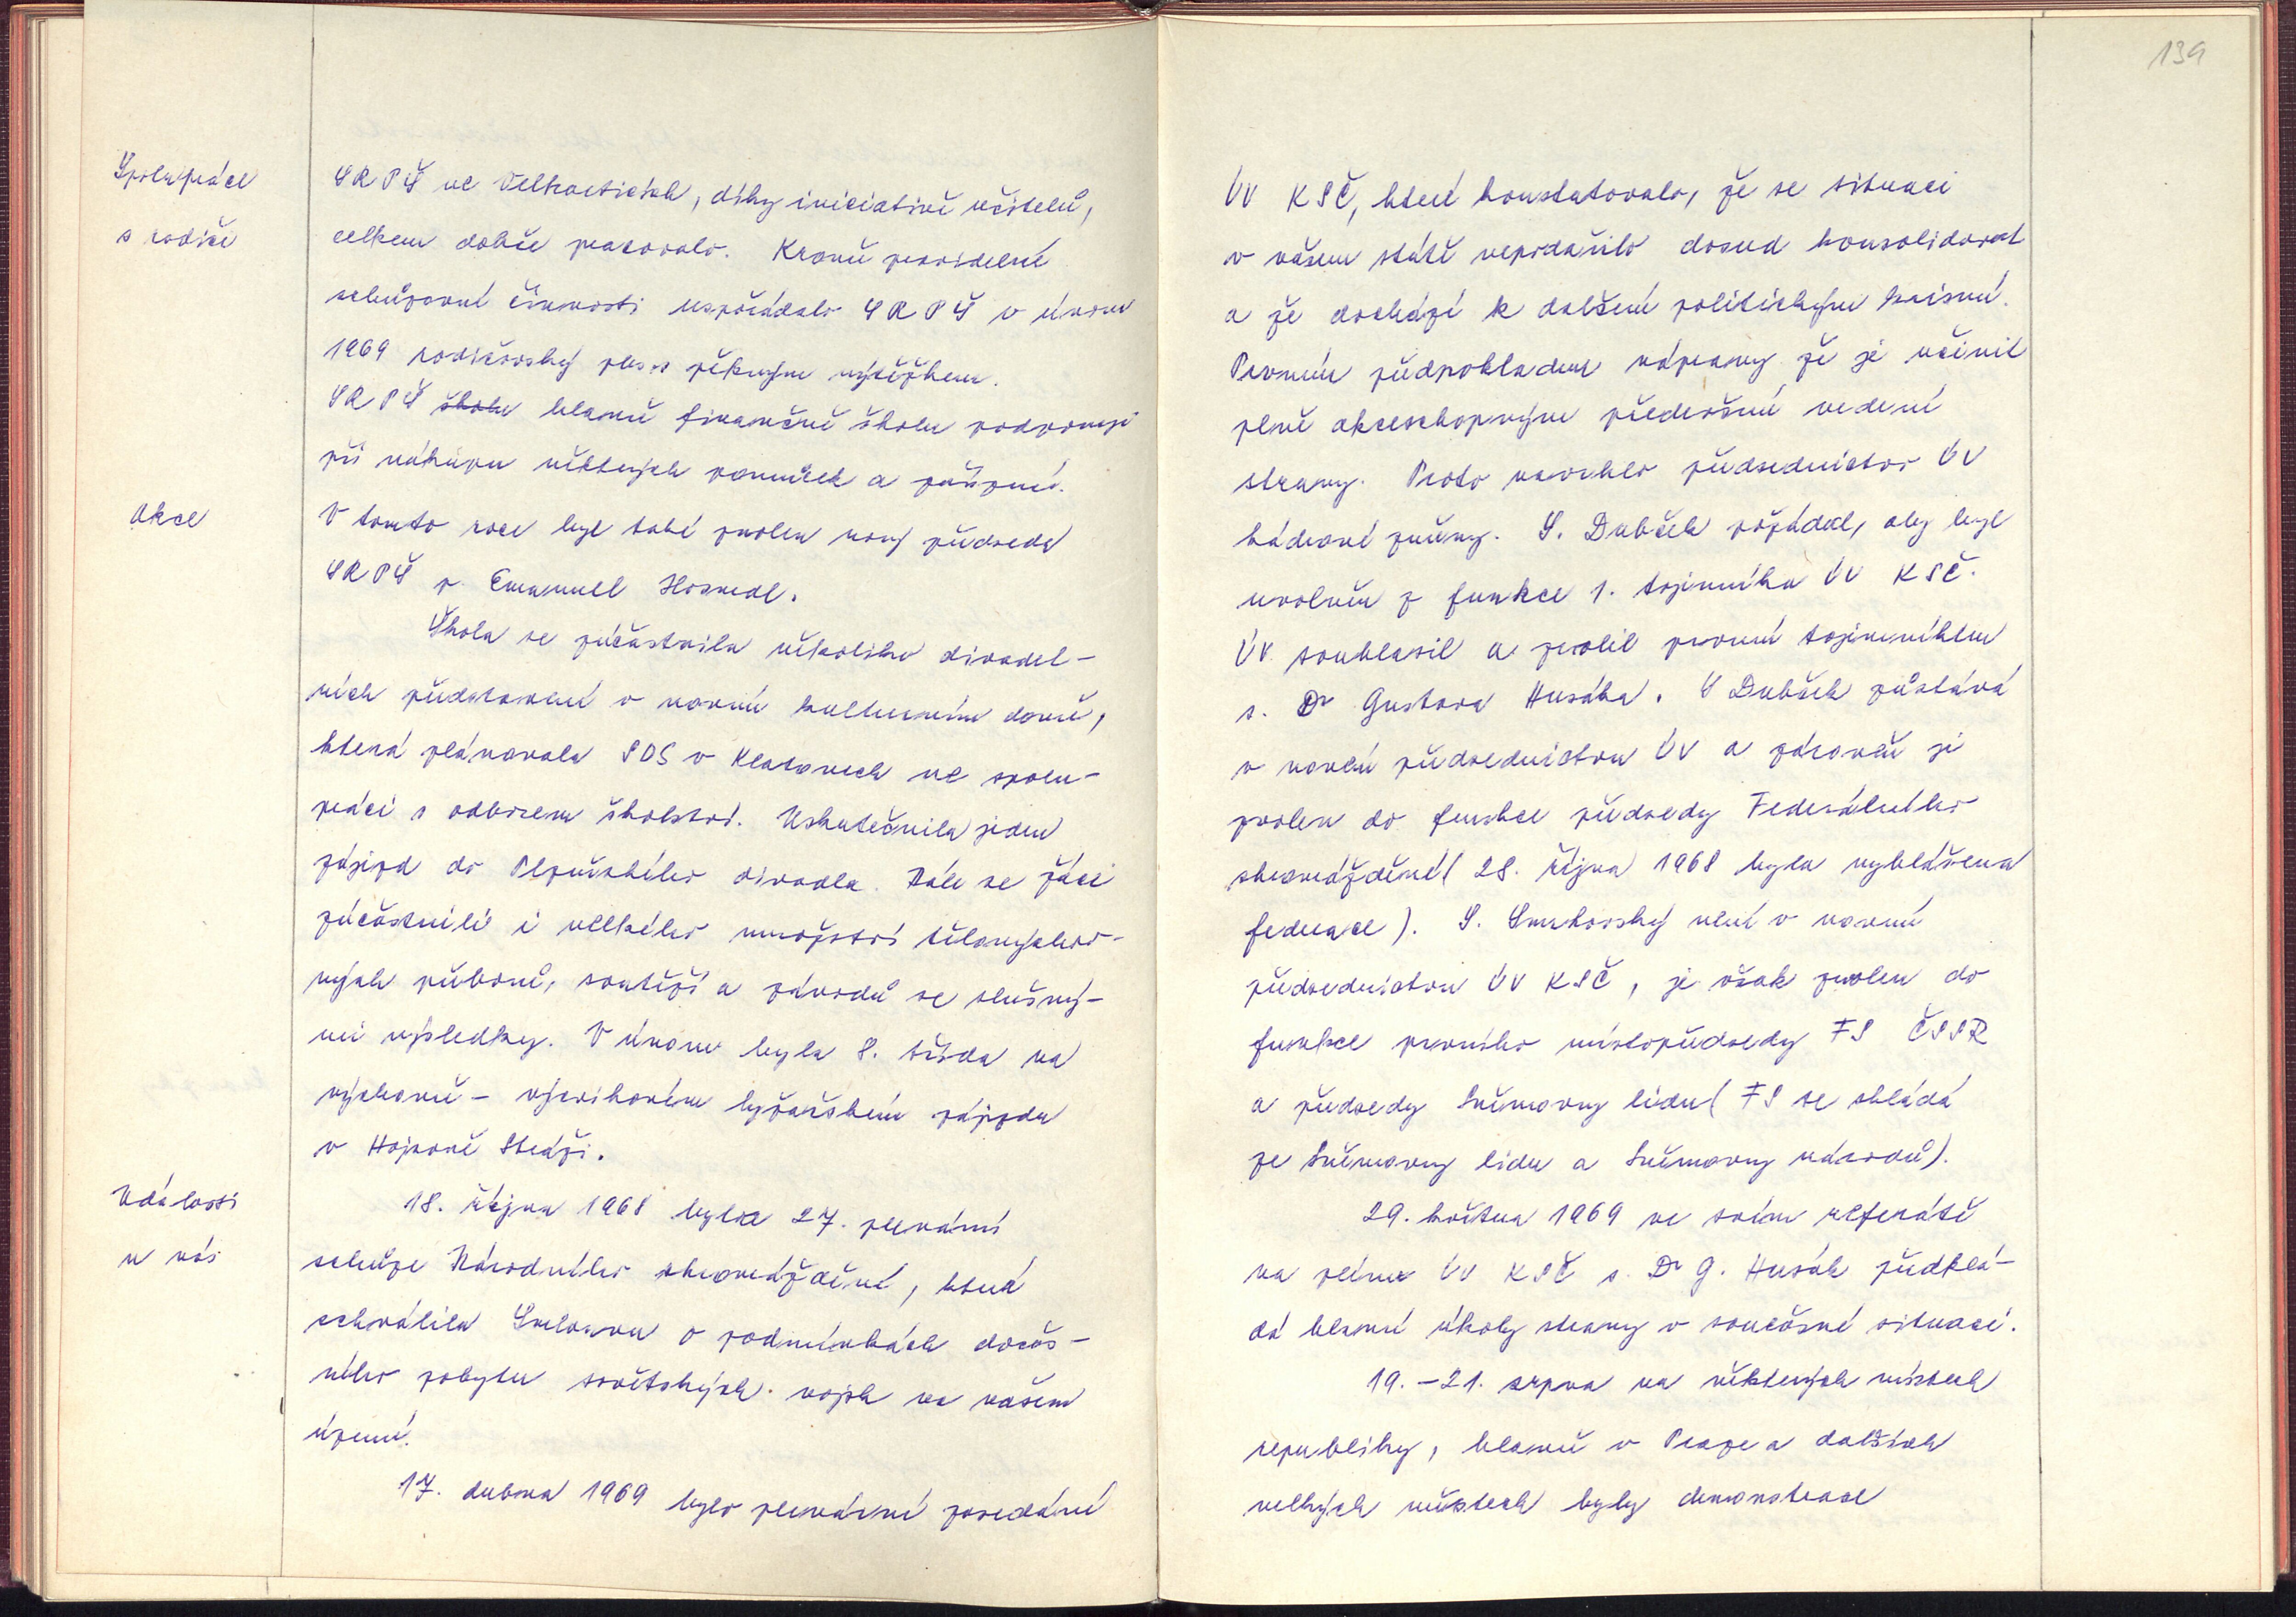 139
Spolupráce
s rodiči
SRPŠ ve Velharticích, díky iniciativě učitelů,
celkem dobře pracovalo. Kromě pravidelné
schůzovní činnosti uspořádalo SRPŠ v únoru
1969 rodičovský ples s pěkným výtěžkem.
SRPŠ školu hlavně finančně školu podporuje
při nákupu některých pomůcek a zařízení.
Akce
V tomto roce byl také zvolen nový předseda
SRPŠ p. Emanuel Hosnedl.
Škola se zúčastnila několika divadel-
ních představení v novém kulturním domě,
která plánovala SDS v Klatovech ve spolu-
práci s odborem školství. Uskutečnila jeden
zájezd do Plzeňského divadla. Dále se žáci
zúčastnili i velkého množství tělovýchov-
ných přeborů, soutěží a závodů se slušný-
mi výsledky. V únoru byla 8. třída na
výchovně - výcvikovém lyžařském zájezdu
v Hojsově Stráži.
Události
u nás
18. října 1968 byla 27. plenární
schůze Národního shromáždění, která
schválila Smlouvu o podmínkách dočas-
ného pobytu sovětských vojsk na našem
území.
17. dubna 1969 bylo plenární zasedání
ÚV KSČ, které konstatovalo, že se situaci
v našem státě nepodařilo dosud konsolidovat
a že dochází k dalším politickým krizím.
Prvním předpokladem nápravy že je učinit
plně akceschopným především vedení
strany. Proto navrhlo předsednictvo ÚV
kádrové změny. S. Dubček požádal, aby byl
uvolněn z funkce 1. tajemníka ÚV KSČ.
ÚV souhlasil a zvolil prvním tajemníkem
s. Dr Gustava Husáka. S Dubček zůstává
v novém předsednictvu ÚV a zároveň je
zvolen do funkce předsedy Federálního
shromáždění ( 28. října 1968 byla vyhlášena
federace ). S. Smrkovský není v novém
předsednictvu ÚV KSČ, je však zvolen do
funkce prvního místopředsedy FS ČSSR
a předsedy Sněmovny lidu ( FS se skládá
ze Sněmovny lidu a Sněmovny národů).
29. května 1969 ve svém referátě
na plénu ÚV KSČ s. Dr G. Husák předklá-
dá hlavní úkoly strany v současné situaci.
19. - 21. srpna na některých místech
republiky, hlavně v Praze a dalších
velkých městech byly demonstrace